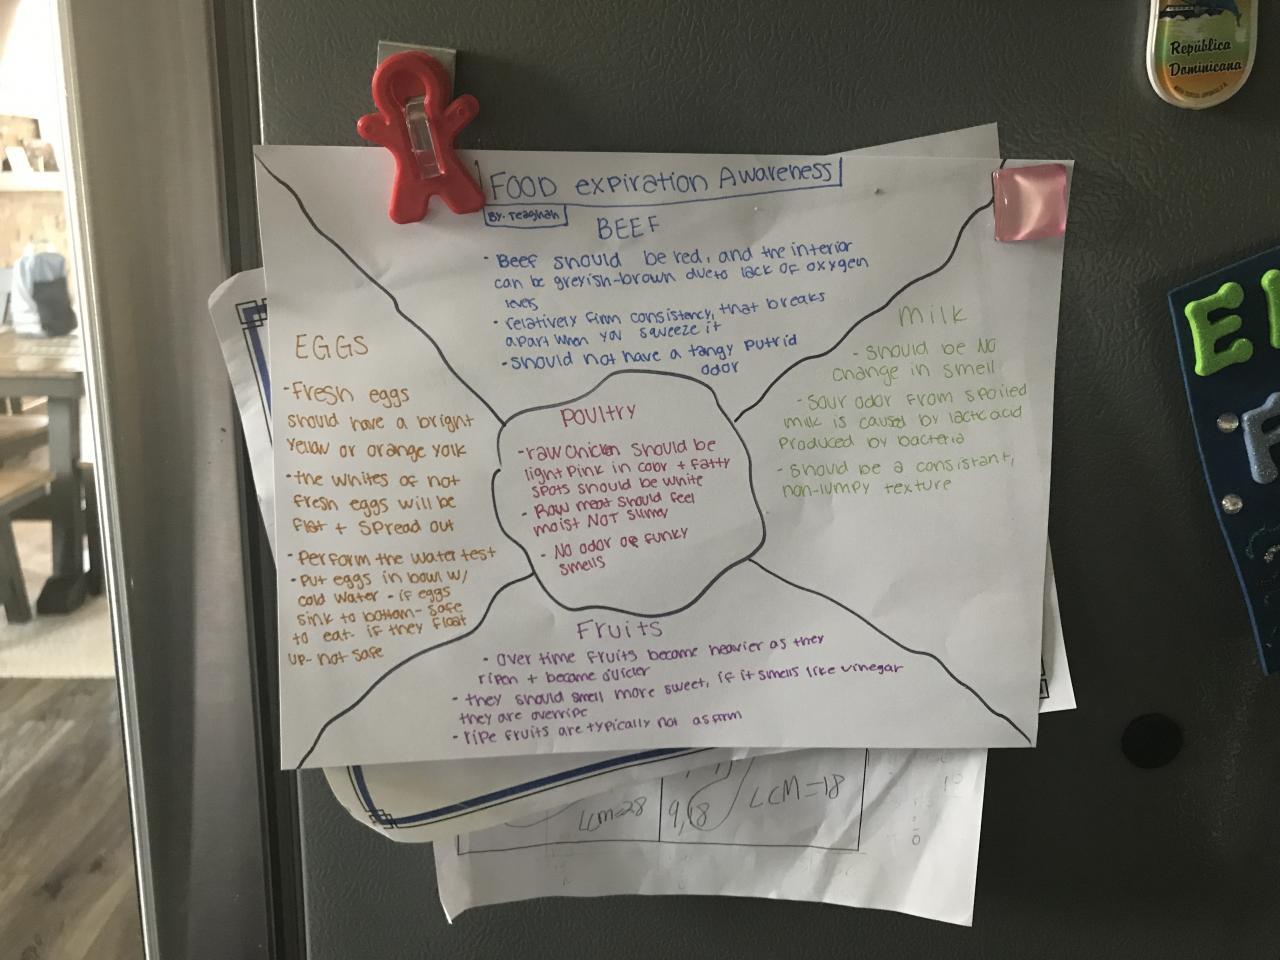 República
Dominicana
FOOD expiration Awareness
By: Teaghan
BEEF
· Beef should be red, and the interior
can be greyish-brown due to lack of oxygen
levels
· relatively firm consistency, that breaks
apart when you squeeze it
· should not have a tangy putrid
odor
EGGS
- Fresh eggs
should have a bright
yellow or orange yolk
· the whites of not
fresh eggs will be
flat + spread out
· perform the water test
· put eggs in bowl w/
cold water - if eggs
sink to bottom - safe
to eat - if they float
up - not safe
POULTRY
- raw chicken should be
light pink in color + fatty
spots should be white
- Raw meat should feel
moist NOT slimy
- No odor or funky
smells
Milk
- should be NO
change in smell
- sour odor from spoiled
milk is caused by lactic acid
produced by bacteria
- should be a consistant,
non-lumpy texture
Fruits
· over time fruits become heavier as they
ripen + become juicier
· they should smell more sweet, if it smells like vinegar
they are overripe
· ripe fruits are typically not as firm
LCM=28
9,18
LCM=18